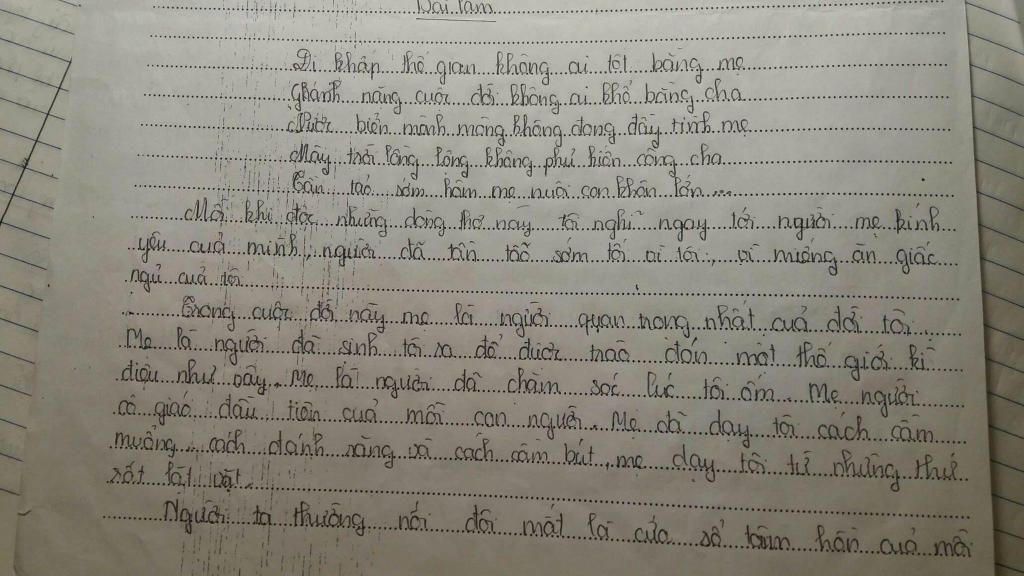 Bài làm
Đi khắp thế gian không ai tốt bằng mẹ
Ghánh nặng cuộc đời không ai khổ bằng cha
Nước biển mênh mông không đong đầy tình mẹ
Mây trời lồng lộng không phủ kiến công cha
Tần tảo sớm hôm mẹ nuôi con khôn lớn...
Mỗi khi đọc những dòng thơ này tôi nghĩ ngay tới người mẹ kính
yêu cuả mình, người đã tần tảo sớm tối vì tôi, vì miếng ăn giấc
ngủ cuả tôi
Trong cuộc đời này mẹ là người quan trọng nhất cuả đời tôi.
Mẹ là người đã sinh tôi ra để được trào đón một thế giới kì
diệu như vậy. Mẹ là người đã chăm sóc lúc tôi ốm. Mẹ người
cô giáo đầu tiên cuả mỗi con người. Mẹ đã dạy tôi cách cầm
muỗng, cách đánh răng và cách cầm bút, mẹ dạy tôi từ những thứ
rất lặt vặt.
Người ta thường nói đôi mắt là cửa sổ tâm hồn cuả mỗi